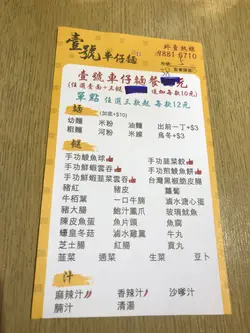 壹號車仔麵
外賣熱線
9881 6710
壹號車仔麵餐 元
(任選壹面+三餸 追加每款10元)
單點 任選三款起 每款12元
麵 (加底+$10)
幼麵 米粉 油麵 出前一丁+$3
粗麵 河粉 米線 烏冬+$3
餸
手功鯪魚球 手功韮菜餃
手功鮮蝦雲吞 手功煎魚餅
手功鮮蝦韮菜雲吞 台灣黑椒脆皮腸
豬紅 豬皮 蘿蔔
牛栢葉 一口牛腩 滷水溏心蛋
豬大腸 鮑汁鳳爪 玻璃魷魚
陳皮魚蛋 魚片頭 魚腐
蟠皇冬菇 滷水雞翼 牛丸
芝士腸 紅腸 貢丸
韮菜 通菜 生菜 豆卜
汁
麻辣汁 香辣汁 沙嗲汁
腩汁 清湯